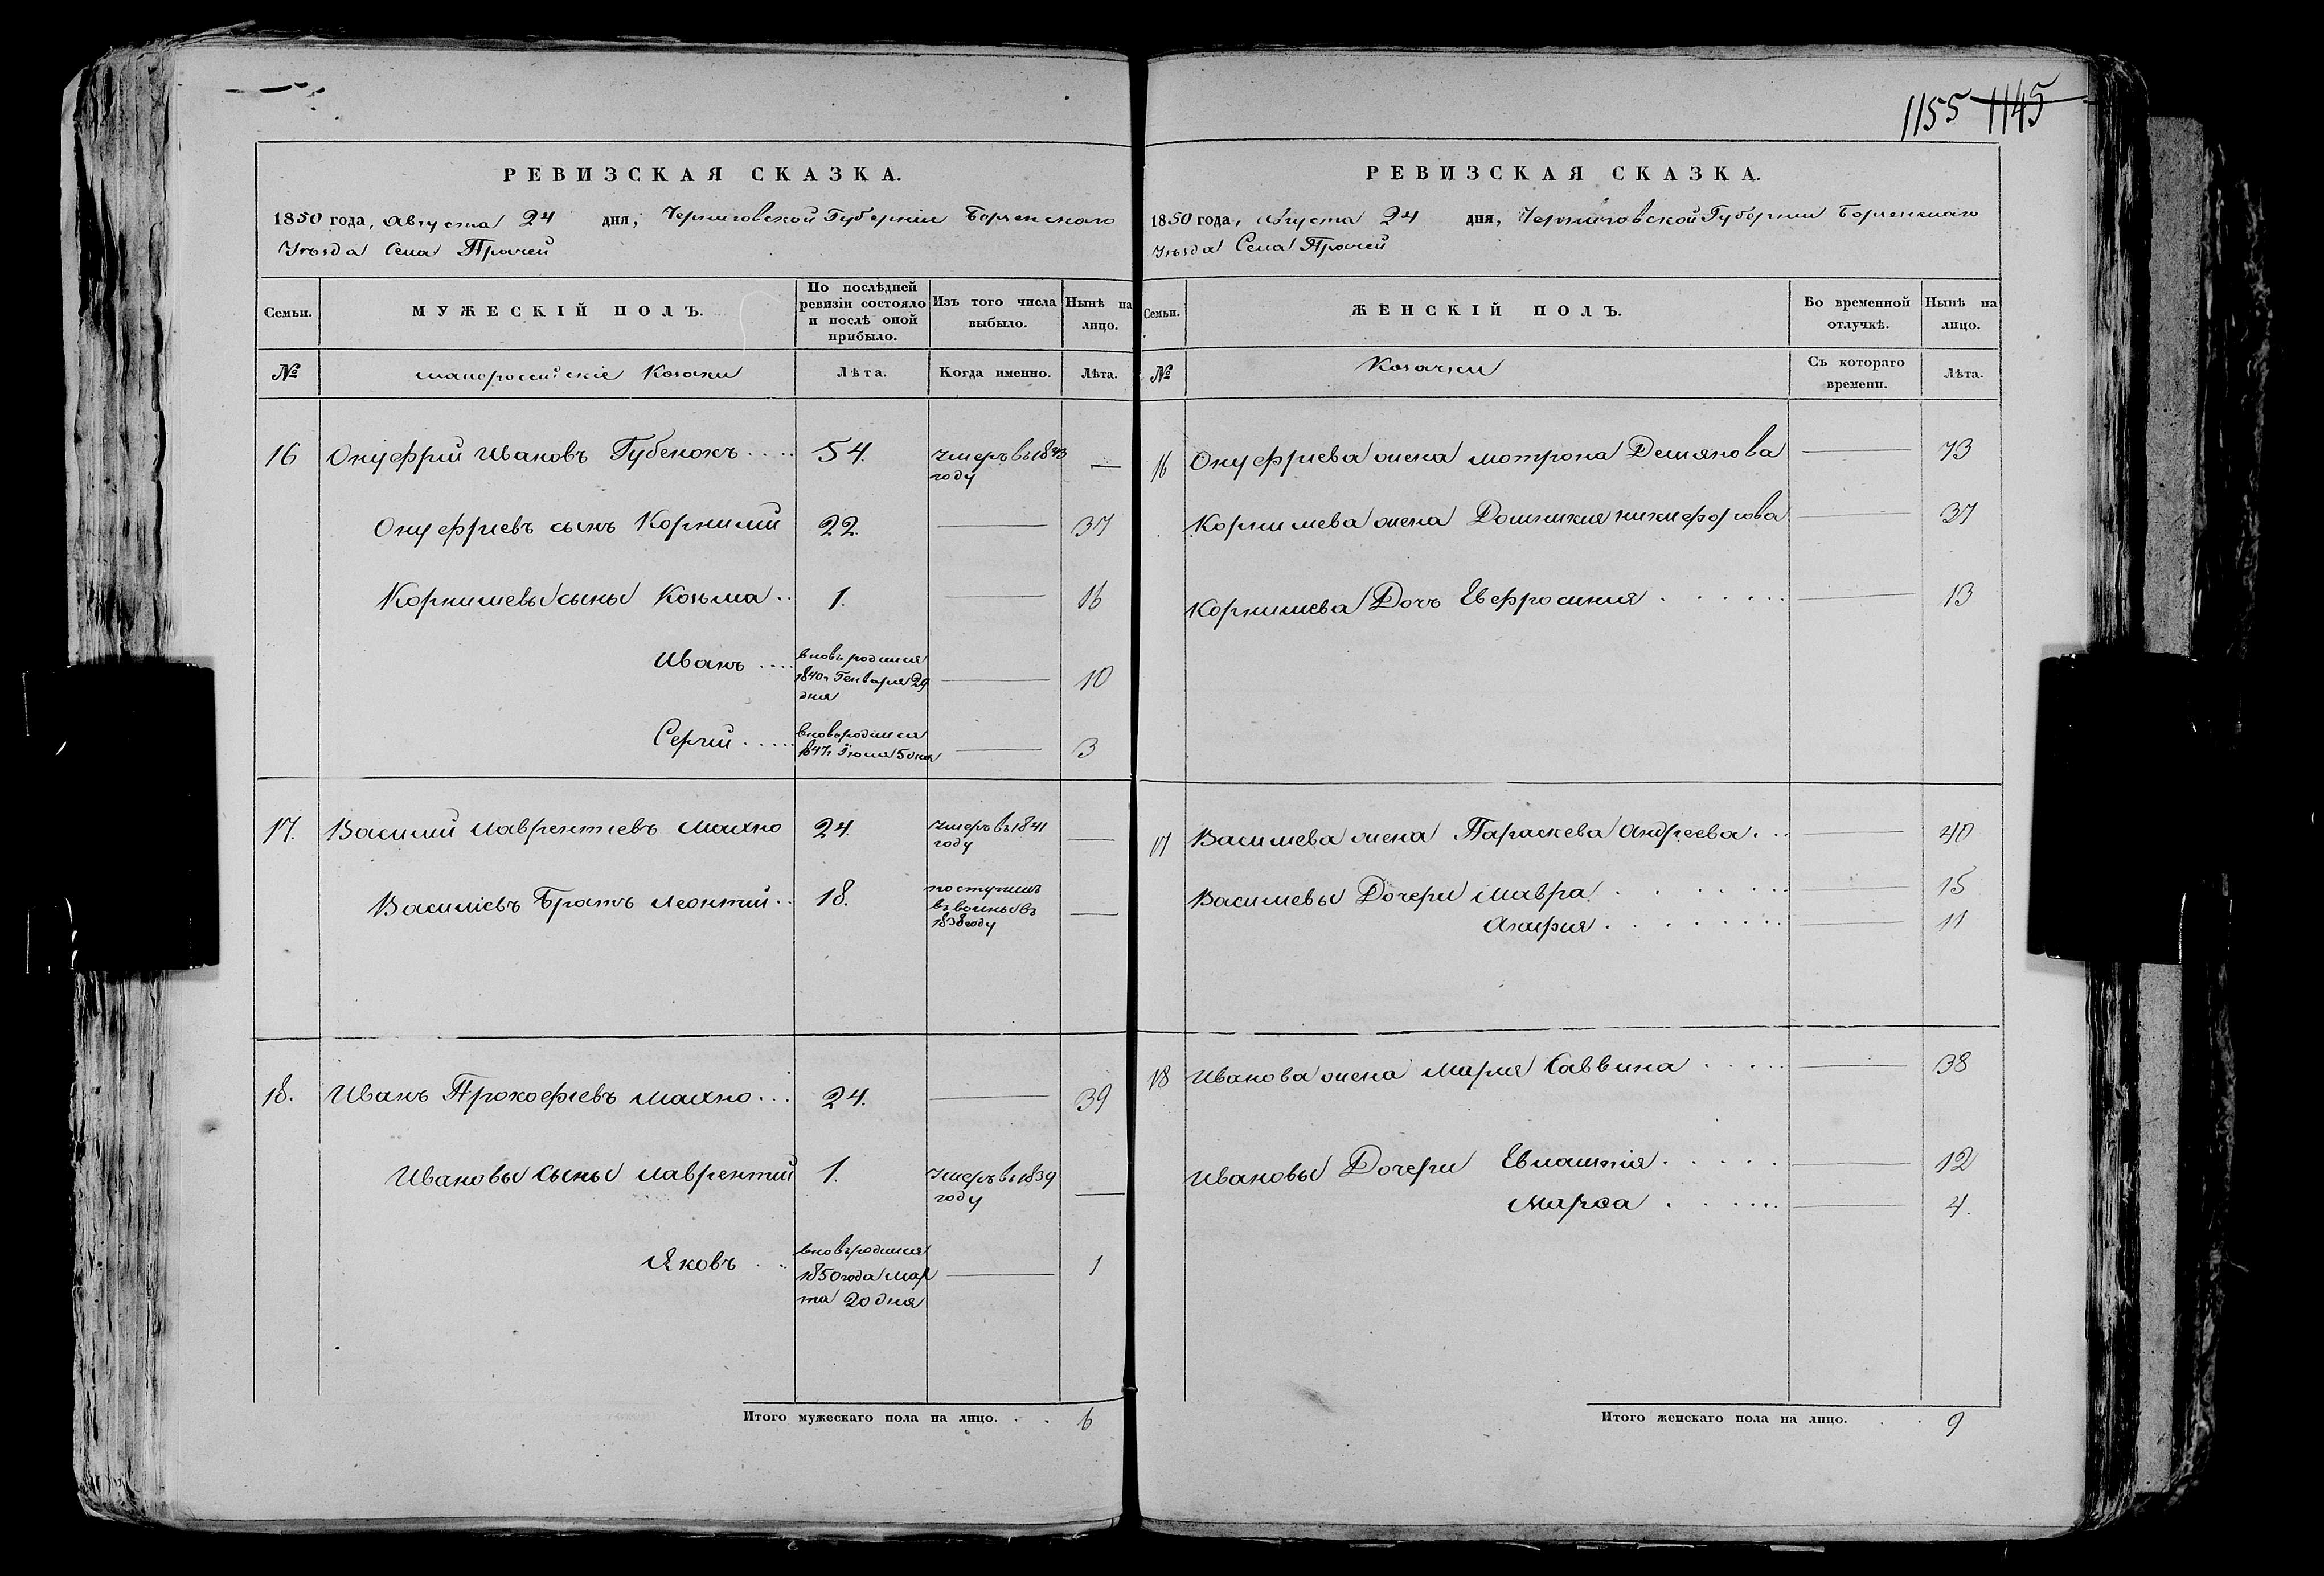 1155 1145
РЕВИЗСКАЯ СКАЗКА.
1850 года, Августа 24 дня, Черниговской Губерніи Борзенскаго
Уѣзда Села Прачей
Семьи.
МУЖЕСКІЙ ПОЛЪ.
По послѣдней ревизіи состояло и послѣ оной прибыло.
Изъ того числа выбыло.
Нынѣ на лицо.
№
малороссійскіе Козаки
Лѣта.
Когда именно.
Лѣта.
16 Онуфрій Ивановъ Губенокъ.... 54. умеръ въ 1843 году —
Онуфріевъ сынъ Корнилій 22. — 37
Корниліевы сыны Козьма.. 1. — 16
Иванъ.... вновь родился 1840 г Генваря 29 дня — 10
Сергій..... вновь родился 1847 г Іюля 5 дня — 3
17. Василий Лаврентіевъ Махно 24. умеръ въ 1841 году —
Василіевъ Братъ Леонтій.. 18. поступилъ въ воины въ 1838 году —
18. Иванъ Прокофіевъ Махно... 24. — 39
Ивановы сыны Лаврентій 1. умеръ въ 1839 году —
Яковъ .. вновь родился 1850 года марта 20 дня — 1
Итого мужескаго пола на лицо. . . 6
РЕВИЗСКАЯ СКАЗКА.
1850 года, Августа 24 дня, Черниговской Губерніи Борзенскаго
Уѣзда Села Прачей
Семьи.
ЖЕНСКІЙ ПОЛЪ.
Во временной отлучкѣ.
Нынѣ на лицо.
№
Козачки
Съ котораго времени.
Лѣта.
16 Онуфріева жена Мотрона Демянова — 73
Корниліева жена Домникия Никифорова — 37
Корниліева Дочь Евфросиния . . . . . . — 13
17 Василиева жена Параскева Андреева. . . — 40
Василиевы Дочери Мавра . . . . . . . — 15
. . . . . . . — 11
18 Иванова жена Мария Саввина . . . . . — 38
Ивановы Дочери Евлампія. . . . . — 12
Марѳа . . . . . . — 4.
Итого женскаго пола на лицо. . . 9